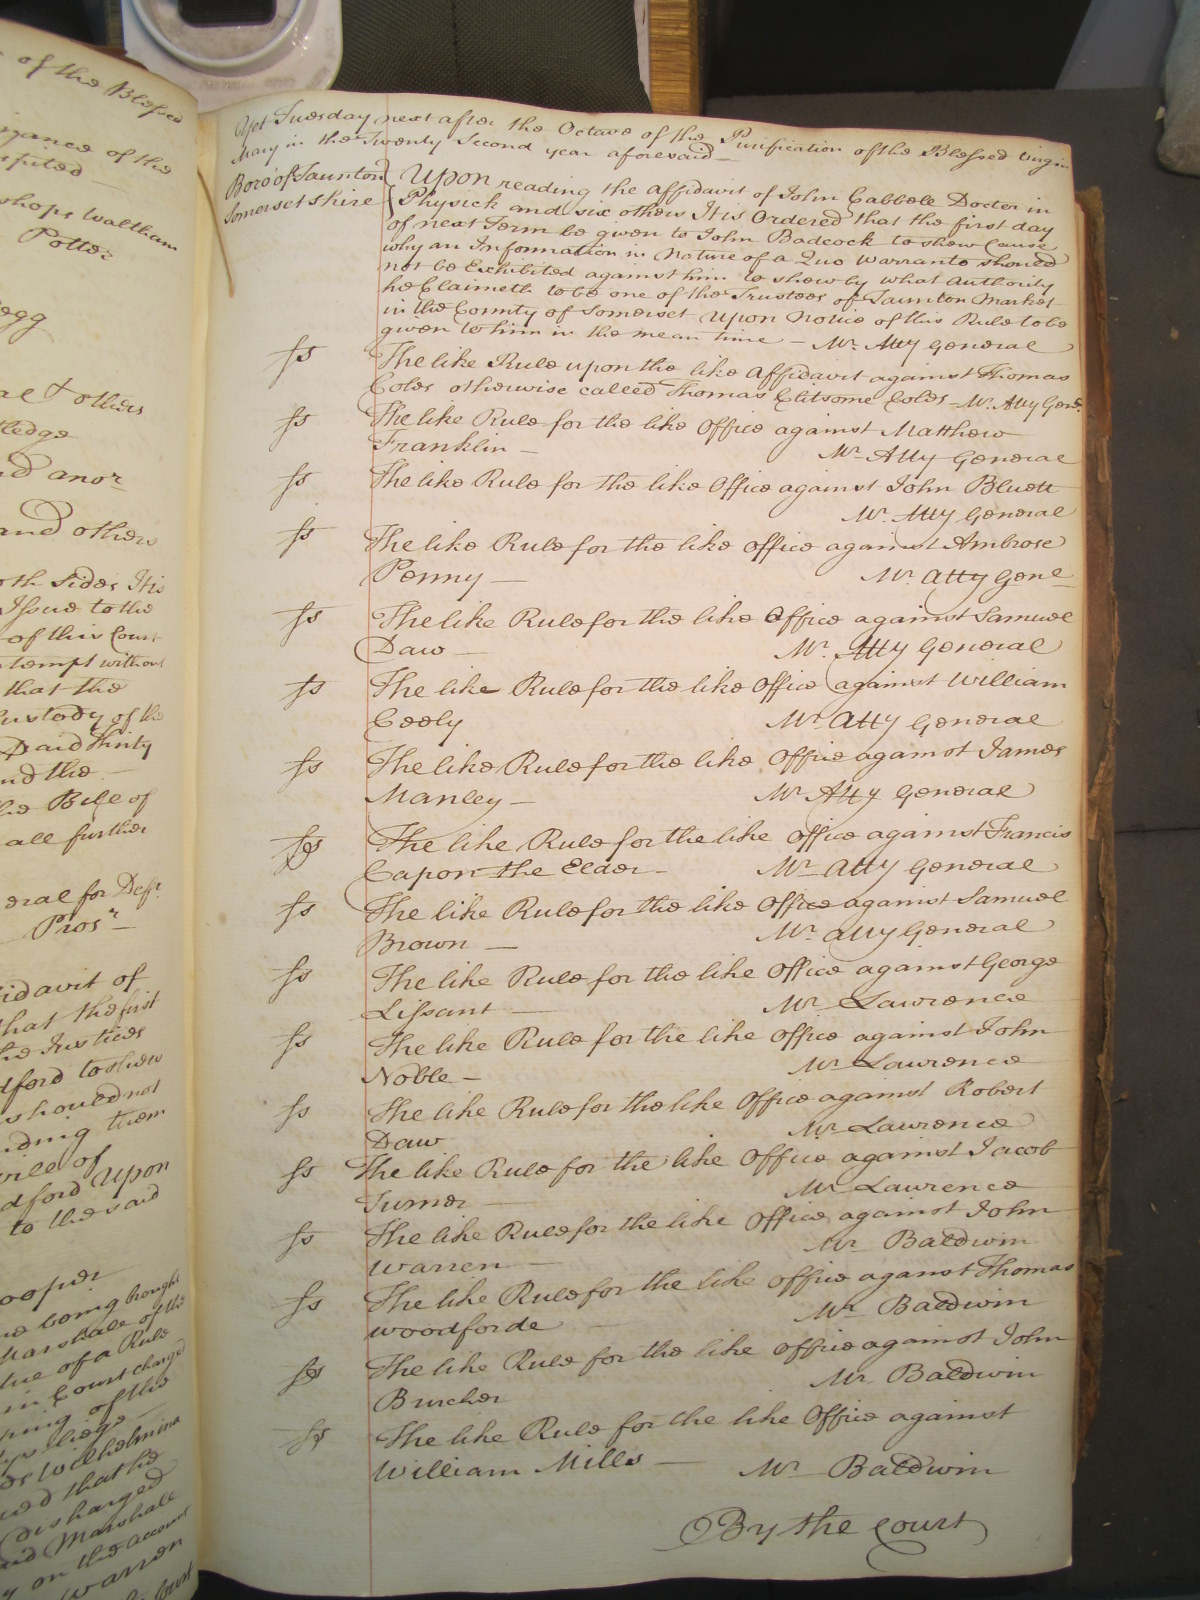 of the Blessed
izance of the
puted
shops Waltham
Potter
egg
al & others
ledge
nd anor
and others
oth Sides It is
Issue to the
of this Court
tempt without
that the
Custody of the
said Thirty
nd the
he Bill of
all further
eral for Deft
Prosr
idavit of
that the first
he Justices
dford to shew
should not
ding them
ville of
dford Upon
to the said
ooper
ne being brought
Marshall of the
tue of a Rule
in Court charged
ping of the
Wilhelmina
ued that he
discharged
aid Marshall
on the account
Warren
Court
Yet Tuesday next after the Octave of the Purification of the Blessed Virgin
Mary in the Twenty Second year aforesaid
Boro' of Taunton
Somersetshire
Upon reading the Affidavit of John Cabbell Doctor in
Physick and six others It is Ordered that the first day
of next Term be given to John Badcock to shew Cause
why an Information in Nature of a Quo Warranto should
not be Exhibited against him to shew by what Authority
he Claimeth to be one of the Trustees of Taunton Market
in the County of Somerset Upon Notice of this Rule to be
given to him in the mean time – Mr. Atty General
ss The like Rule upon the like Affidavit against Thomas
Coles otherwise called Thomas Clitsome Coles – Mr. Atty Genl.
ss The like Rule for the like Office against Matthew
Franklin – Mr. Atty General
ss The like Rule for the like Office against John Bluett
Mr. Atty General
ss The like Rule for the like Office against Ambrose
Penny – Mr. Atty Genl
ss The like Rule for the like Office against Samuel
Daw – Mr. Atty General
ss The like Rule for the like Office against William
Cooly Mr. Atty General
ss The like Rule for the like Office against James
Manley – Mr. Atty General
ss The like Rule for the like Office against Francis
Capon the Elder – Mr. Atty General
ss The like Rule for the like Office against Samuel
Brown – Mr. Atty General
ss The like Rule for the like Office against George
Lissant – Mr. Lawrence
ss The like Rule for the like Office against John
Noble – Mr. Lawrence
ss The like Rule for the like Office against Robert
Daw Mr. Lawrence
ss The like Rule for the like Office against Jacob
Turner – Mr. Lawrence
ss The like Rule for the like Office against John
Warren – Mr. Baldwin
ss The like Rule for the like Office against Thomas
Woodforde – Mr. Baldwin
ss The like Rule for the like Office against John
Buncher Mr. Baldwin
ss The like Rule for the like Office against
William Mills – Mr. Baldwin
By the Court